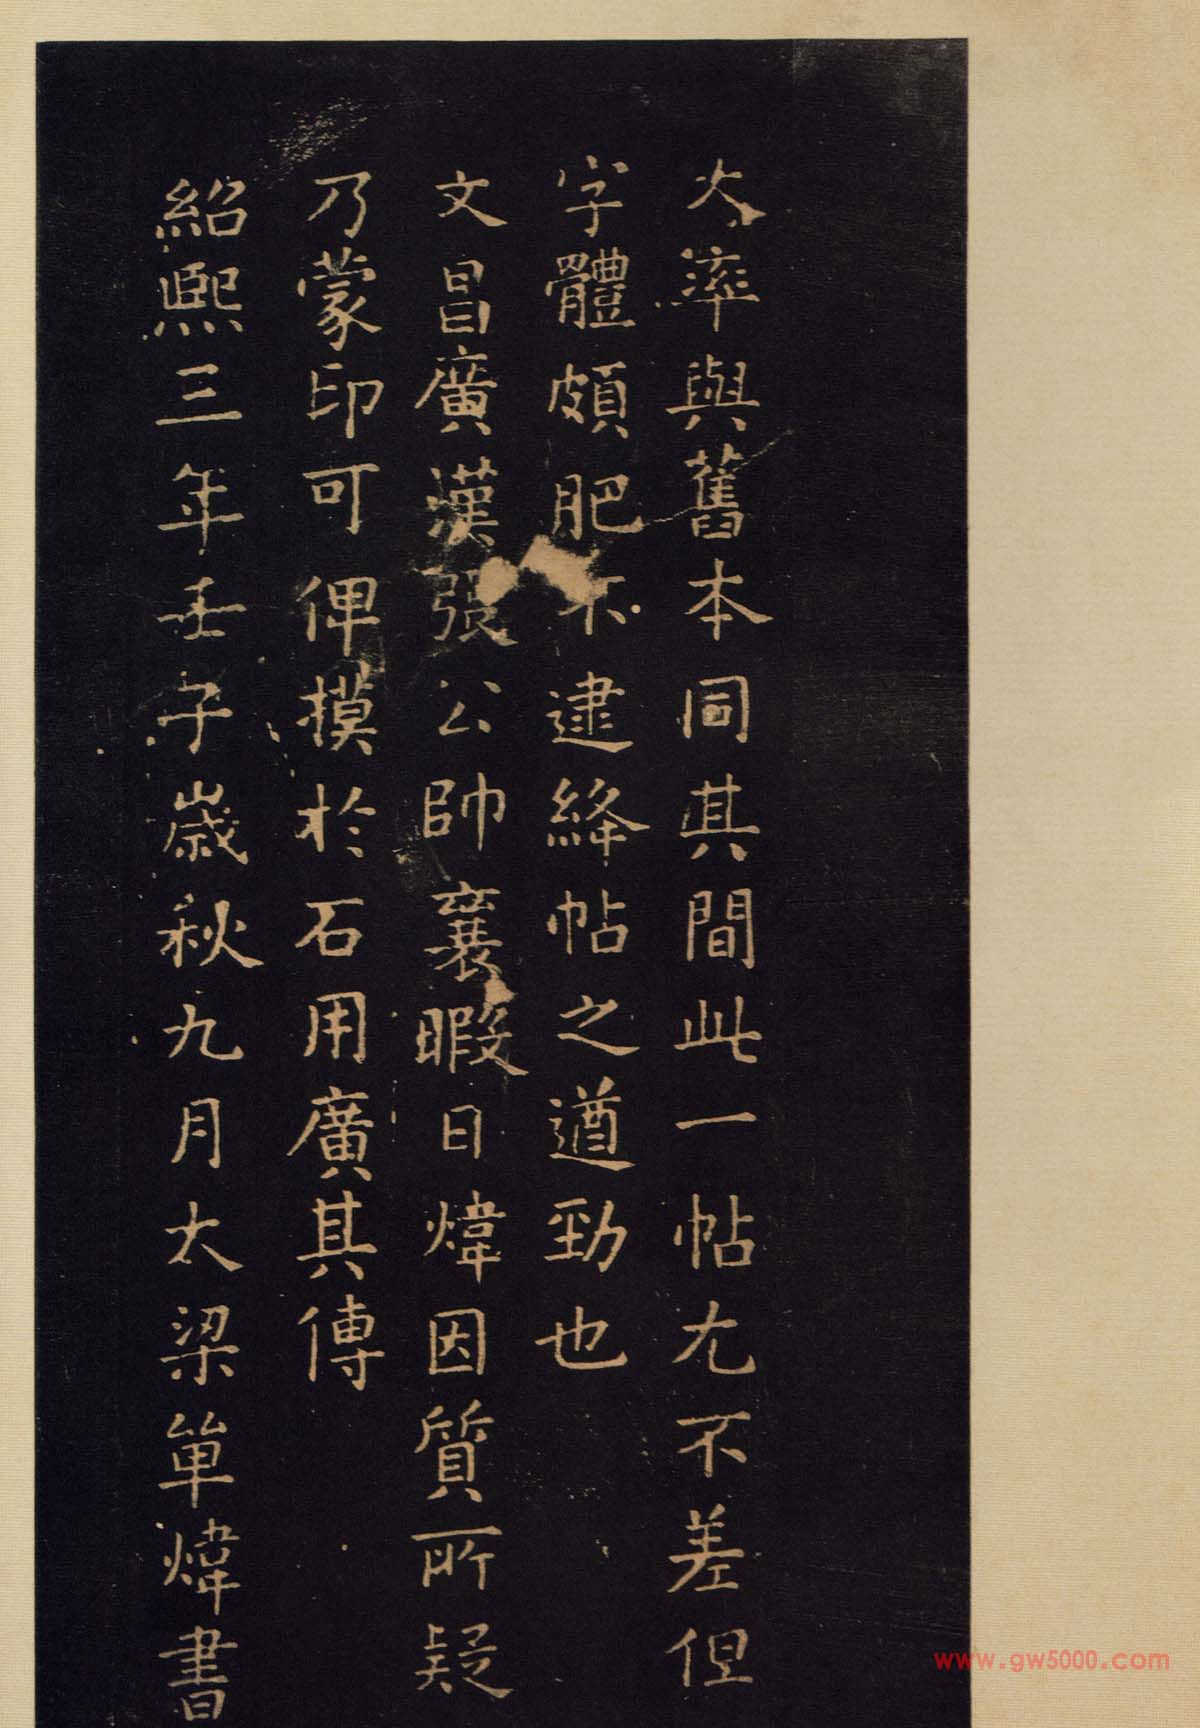 大率與舊本同其間此一帖尤不差但
字體頗肥不逮絳帖之遒勁也
文昌廣漢張公帥襄暇日煒因質所疑
乃蒙印可俾摸於石用廣其傳
紹熙三年壬子歲秋九月大梁單煒書
www.gw5000.com